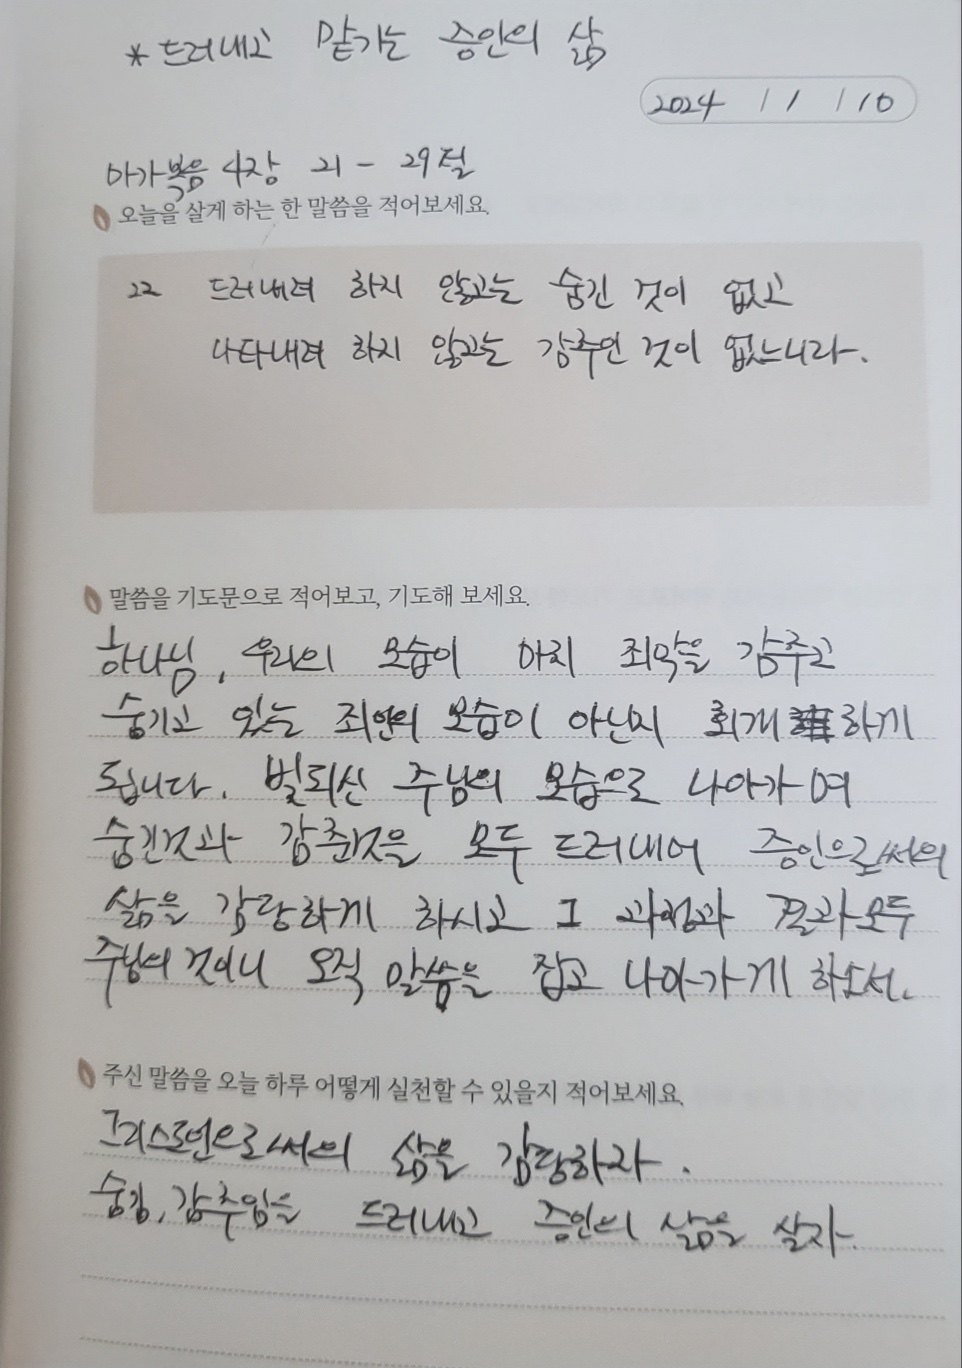 * 드러내고 맡기는 증인의 삶
2024 / 1 / 10
마가복음 4장 21 - 29절
오늘을 살게 하는 한 말씀을 적어보세요.
22 드러내려 하지 않고는 숨긴 것이 없고
나타내려 하지 않고는 감추인 것이 없느니라.
말씀을 기도문으로 적어보고, 기도해 보세요.
하나님, 우리의 모습이 마치 죄악을 감추고
숨기고 있는 죄인의 모습이 아닌지 회개하게
됩니다. 빛되신 주님의 모습으로 나아가며
숨긴것과 감춘것을 모두 드러내어 증인으로써의
삶을 감당하게 하시고 그 과정과 결과 모두
주님의 것이니 오직 말씀을 잡고 나아가게 하소서.
주신 말씀을 오늘 하루 어떻게 실천할 수 있을지 적어보세요.
그리스도인으로써의 삶을 감당하자.
숨김, 감추임을 드러내고 증인의 삶을 살자.